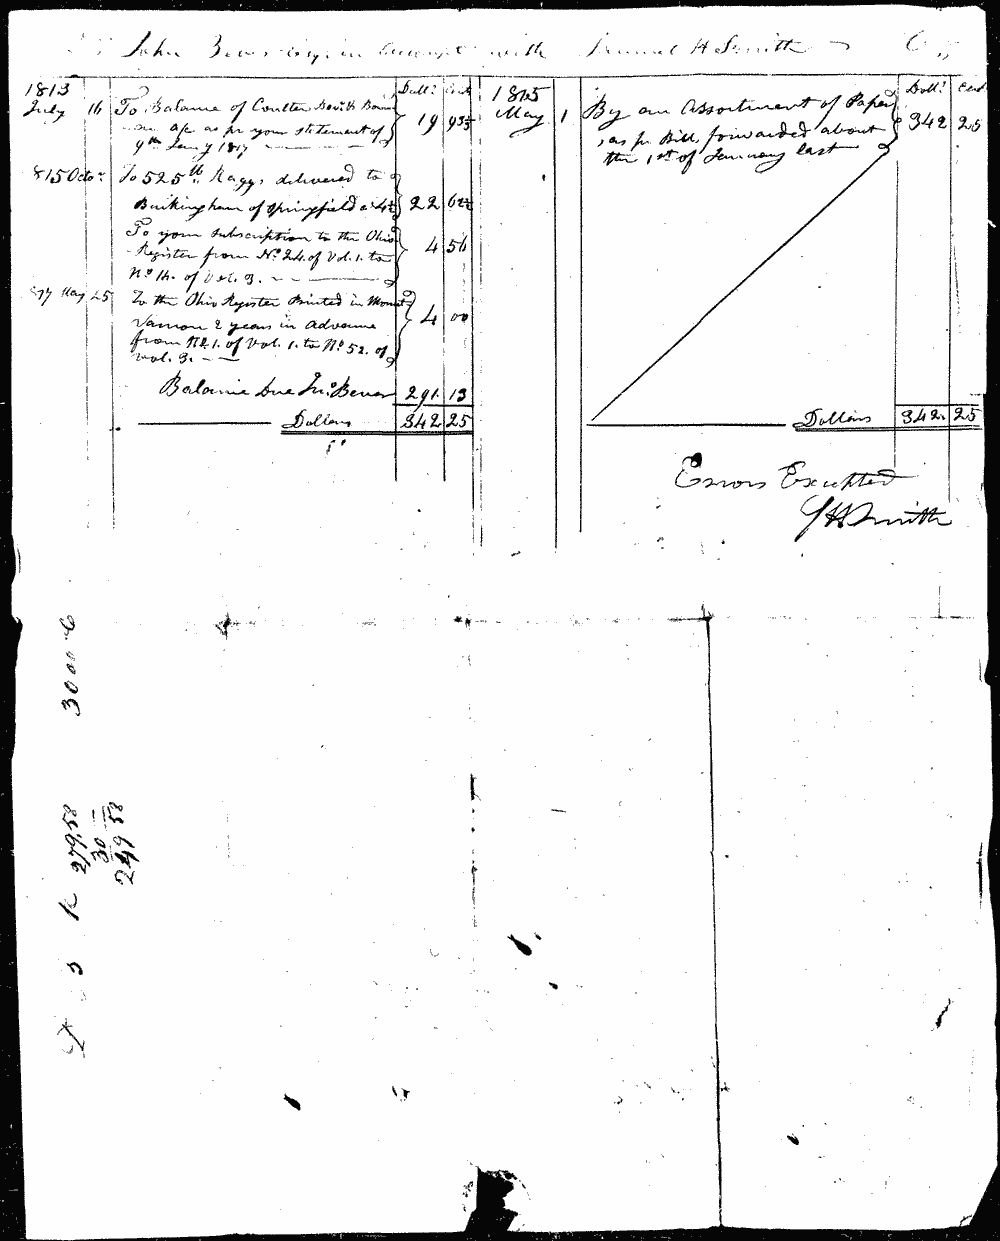 John Bever Esqr. in Accompt with Samuel H Smith Cr
Doll.s Cents
1813
July 16 To Balance of Coulter Bevets Bever
on a/c as pr your statement of
9th Jany 1817 19 93
1815 Octor To 525 lb Raggs delivered to
Buckingham of Springfield a 4 22 62½
To your subscription to the Ohio
Register from No. 24. of Vol. 1. to
No 14. of Vol. 3. 4 56
May 25 To the Ohio Register Printed in Mount
Varnon 2 years in advance
from No. 1. of Vol. 1. to No. 52. of
Vol. 3. 4 00
Balance Due Jno. Bever 291. 13
Dollars 342 25
Doll.s Cents
1815
May 1 By an Assortment of Paper
as pr. Bill, forwarded about
the 1st of January last 342 25
Dollars 342. 25
Errors Excepted
SHSmith
30 00
279.58
30
249 58